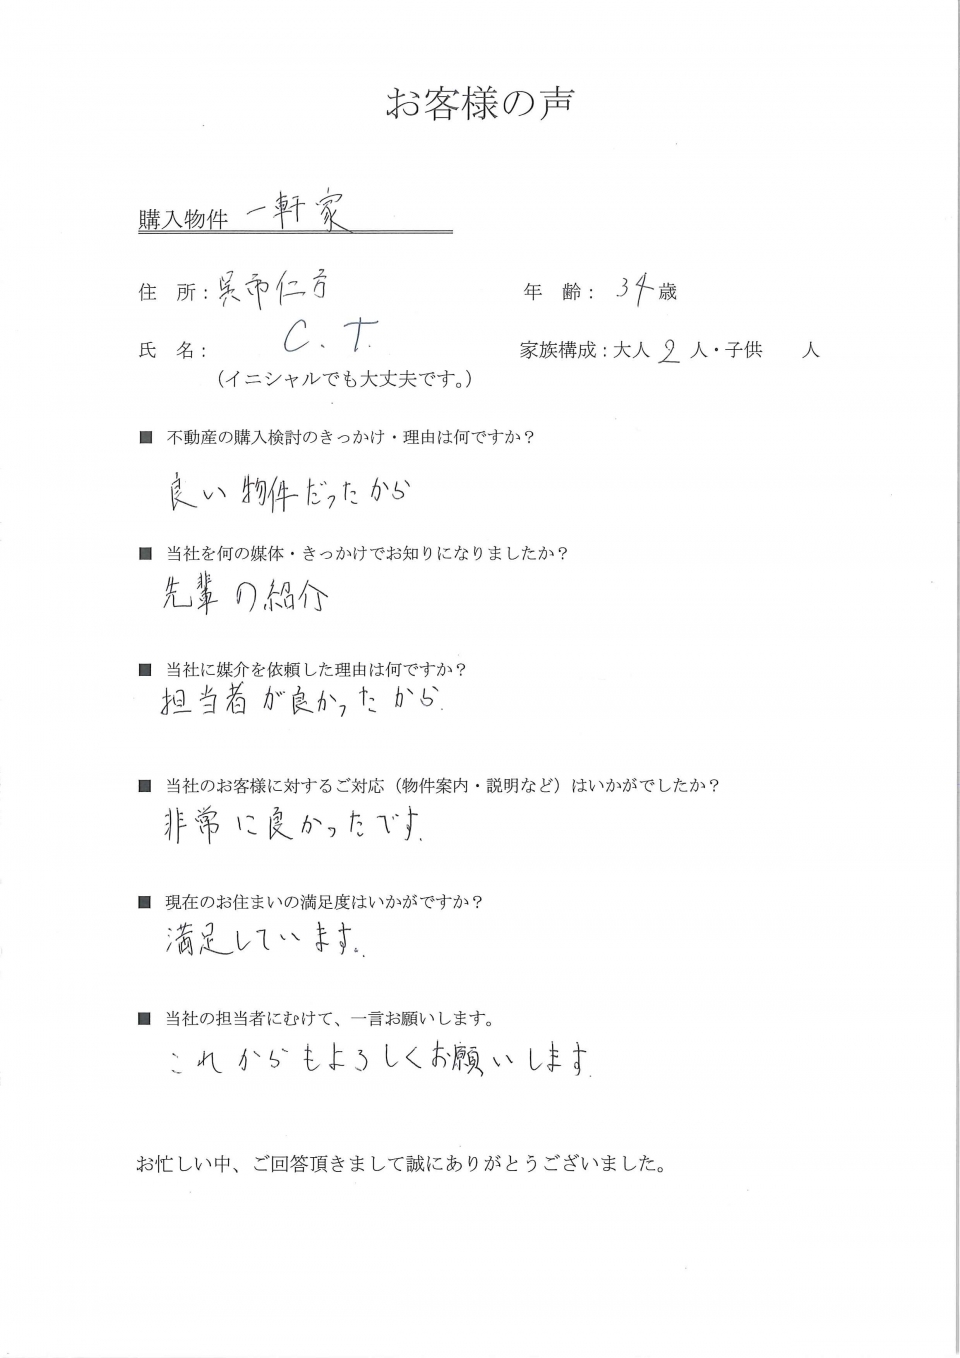 お客様の声
購入物件 一軒家
住 所：呉市仁方 年 齢： 34歳
氏 名： C．T． 家族構成：大人 2 人・子供 人
（イニシャルでも大丈夫です。）
■ 不動産の購入検討のきっかけ・理由は何ですか？
良い物件だったから
■ 当社を何の媒体・きっかけでお知りになりましたか？
先輩の紹介
■ 当社に媒介を依頼した理由は何ですか？
担当者が良かったから.
■ 当社のお客様に対するご対応（物件案内・説明など）はいかがでしたか？
非常に良かったです.
■ 現在のお住まいの満足度はいかがですか？
満足しています.
■ 当社の担当者にむけて、一言お願いします。
これからもよろしくお願いします.
お忙しい中、ご回答頂きまして誠にありがとうございました。